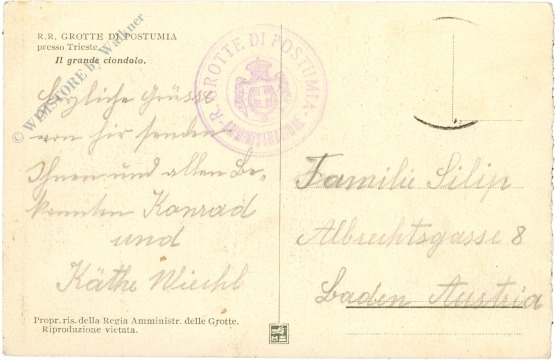 R.R. GROTTE DI POSTUMIA
presso Trieste
Il grande ciondolo.
© WIMSTORE by Walkner
R. R. GROTTE DI POSTUMIA
AMMINISTRAZIONE
Herzliche Grüsse
von hir senden
Ihnen und allen Be-
kannten Konrad
und
Käthe Wiechl
Familie Silip
Albrechtsgasse 8
Baden Austria
Propr. ris. della Regia Amministr. delle Grotte.
Riproduzione vietata.